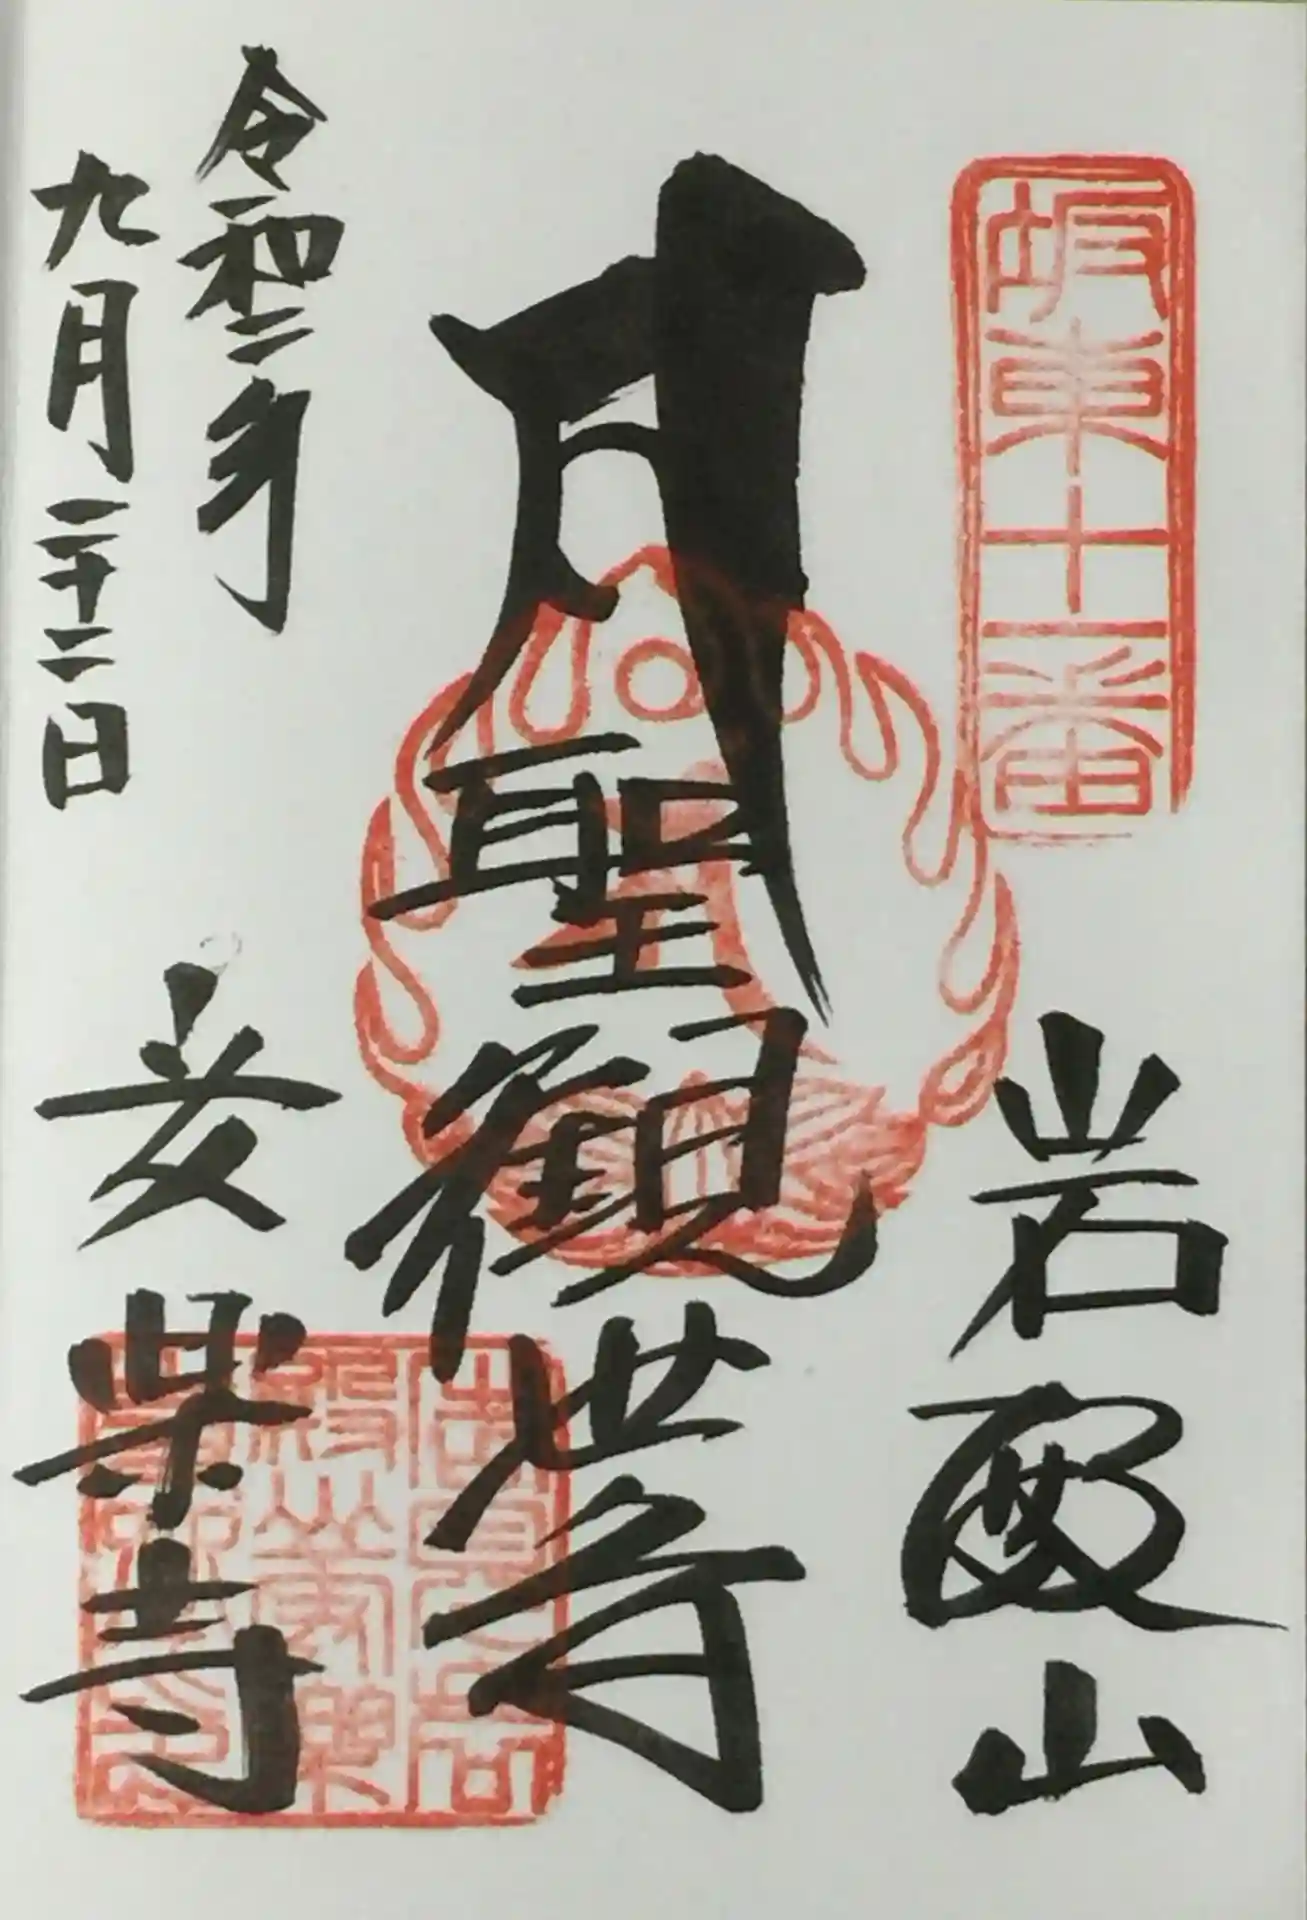 坂東十一番
岩殿山
聖観世音
令和二年
九月二十二日
安楽寺